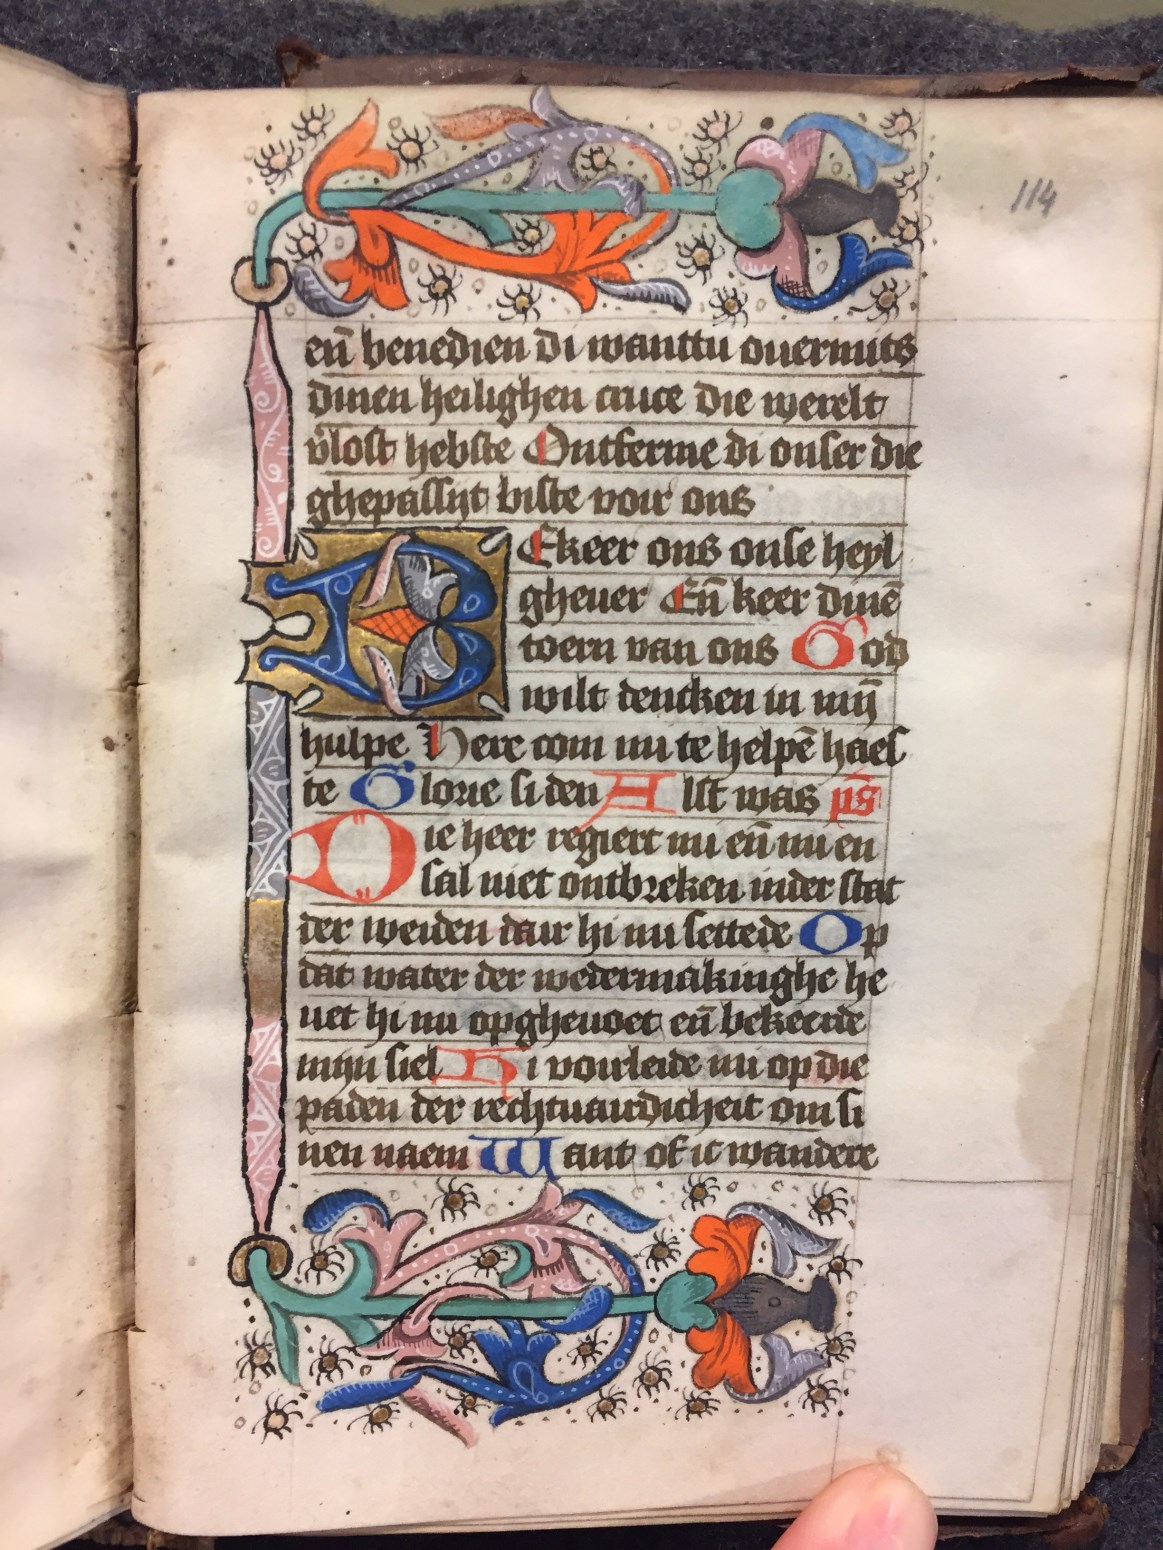 114
en̄ benedien di wanttu ouermits
dinen heilighen cruce die werelt
v̓lost hebste Ontferme di onser die
ghepassijt biste voir ons
BEkeer ons onse heyl
gheuer En̄ keer dinē
toern van ons God
wilt dencken in mij̄
hulpe Here com nu te helpē haes
te Glorie si den Alst was ps̄
Die heer regiert mi en̄ mi en
sal niet ontbreken inder stat
der weiden dair hi mi settede Op
dat water der wedermakinghe he
uet hi mi opgheuoet en̄ bekeerde
mijn siel Hi voirleide mi op die
paden der rechtuairdicheit om si
nen naem Want of ic wandere